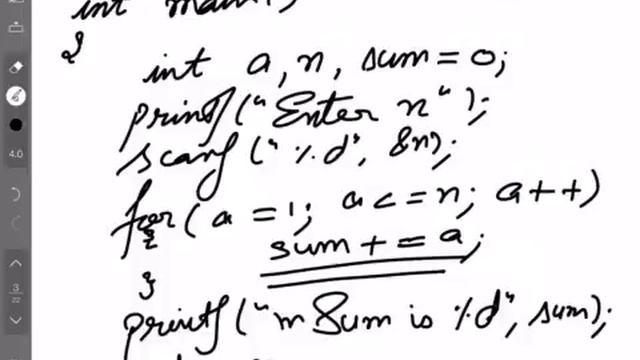 int main()
{
int a, n, sum = 0;
printf("Enter n");
scanf("%d", &n);
for(a = 1; a <= n; a++)
{
sum += a;
}
printf("\n Sum is %d", sum);
4.0
3
22